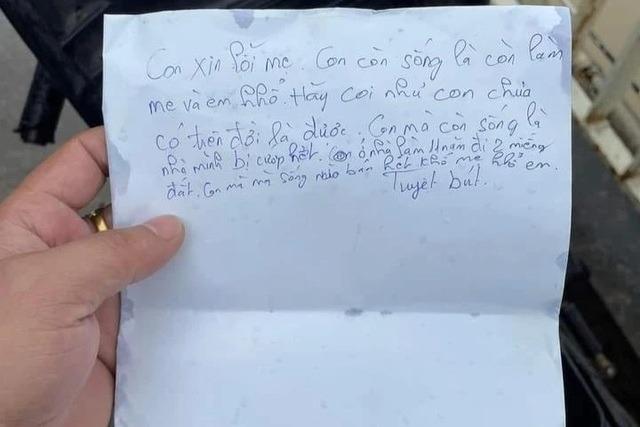 Con xin lỗi mẹ. Con còn sống là còn làm
mẹ và em khổ. Hãy coi như con chưa
có trên đời là được. Con mà còn sống là
nhà mình bị cướp hết. ở nhà làm 11 năm đi 2 miếng
đất. Con mà mà sống nào bạn hết khổ mẹ khổ em.
Tuyệt bút.